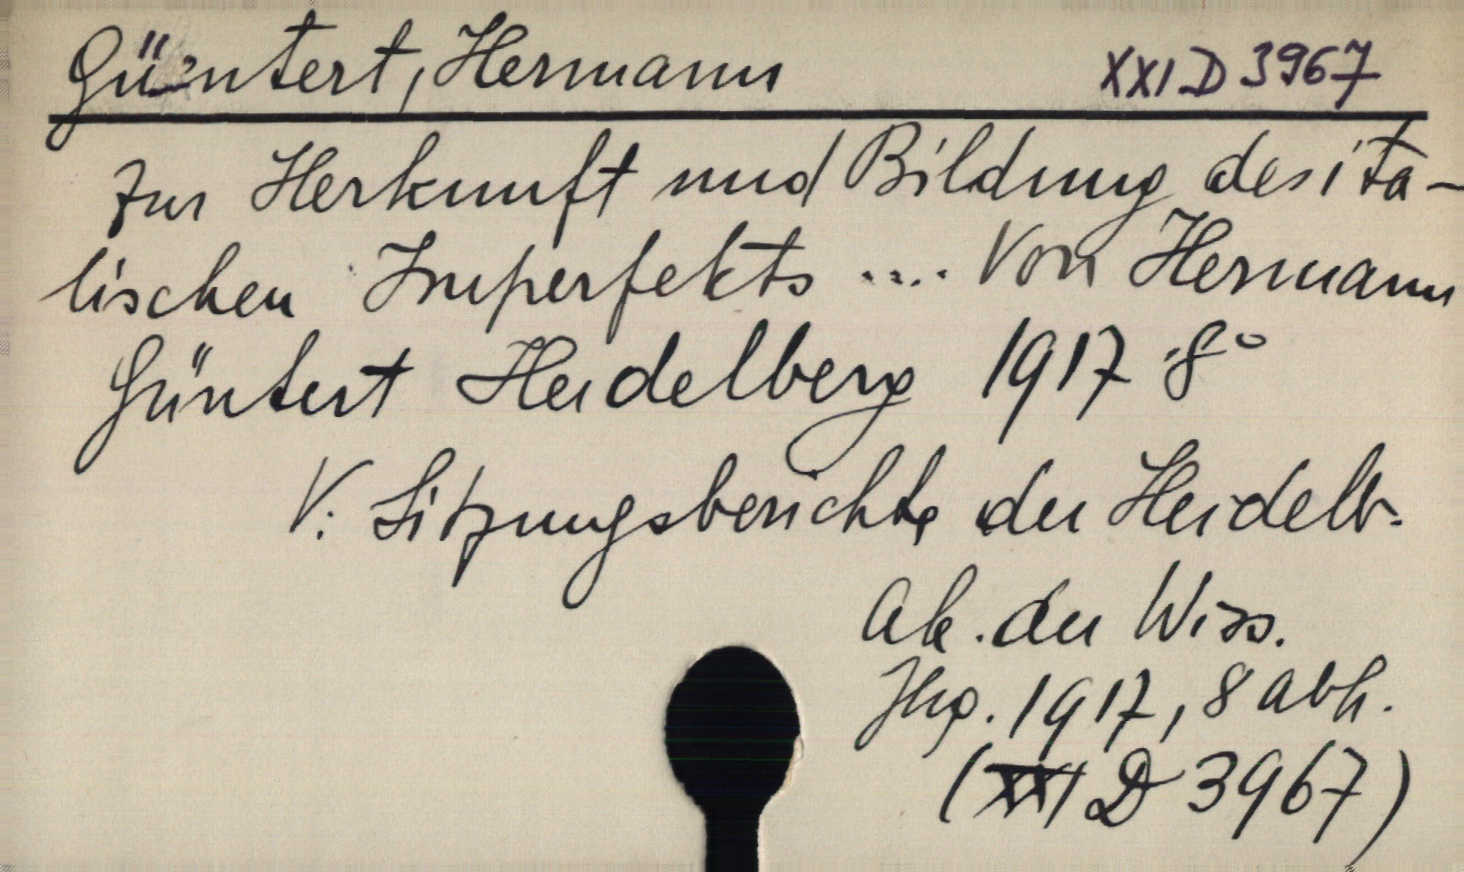 Güntert, Hermann XXI D 3967
Zur Herkunft und Bildung des ita-
lischen Imperfekts .... Von Hermann
Güntert Heidelberg 1917 8°
V: Sitzungsberichte der Heidelb.
Ak. der Wiss.
Jhg. 1917, 8 Abh.
(XXI D 3967)